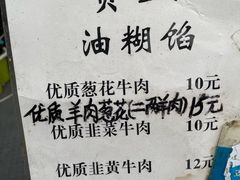 油糊馅
优质葱花牛肉 10元
优质羊肉葱花(二两鲜肉)15元
优质韭菜牛肉 10元
优质韭黄牛肉 12元